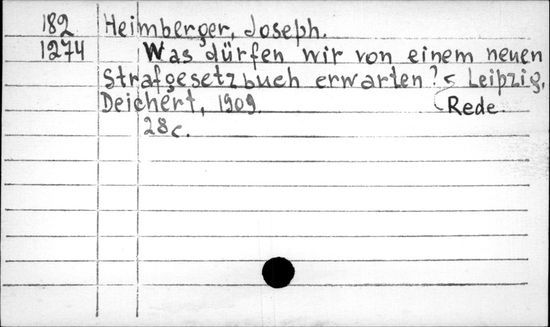 182 Heimberger, Joseph.
1274 Was dürfen wir von einem neuen
Strafgesetzbuch erwarten? < Leipzig,
Deichert, 1909. (Rede.
28 c.